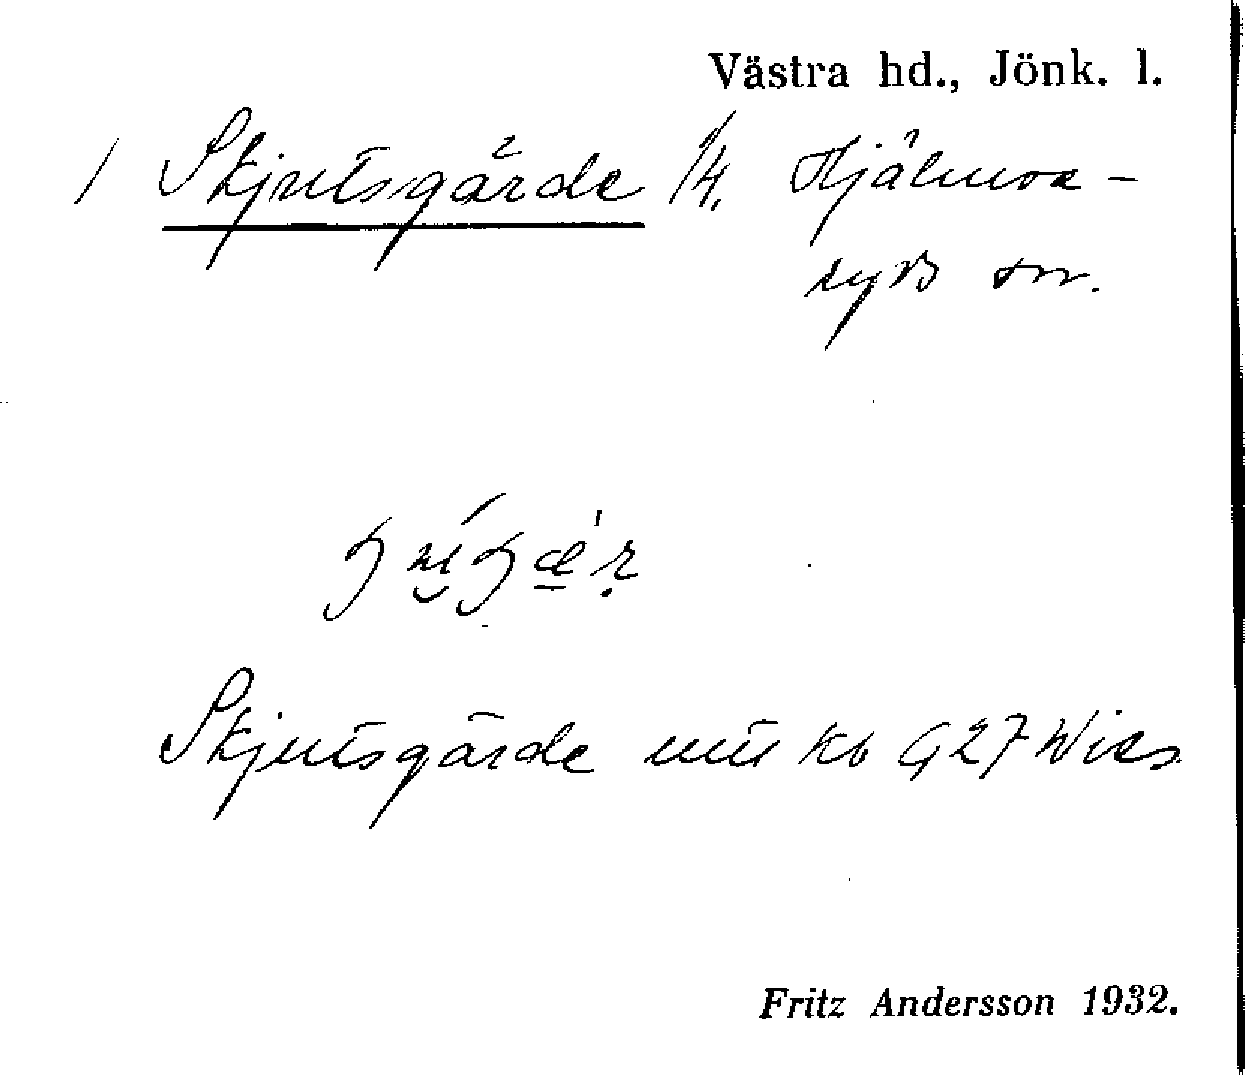 Västra hd., Jönk. l.
1 Skjutsgärde 1/4. Hjälmse-
ryds sn.
Skjutsgärde kb G27
Fritz Andersson 1932.